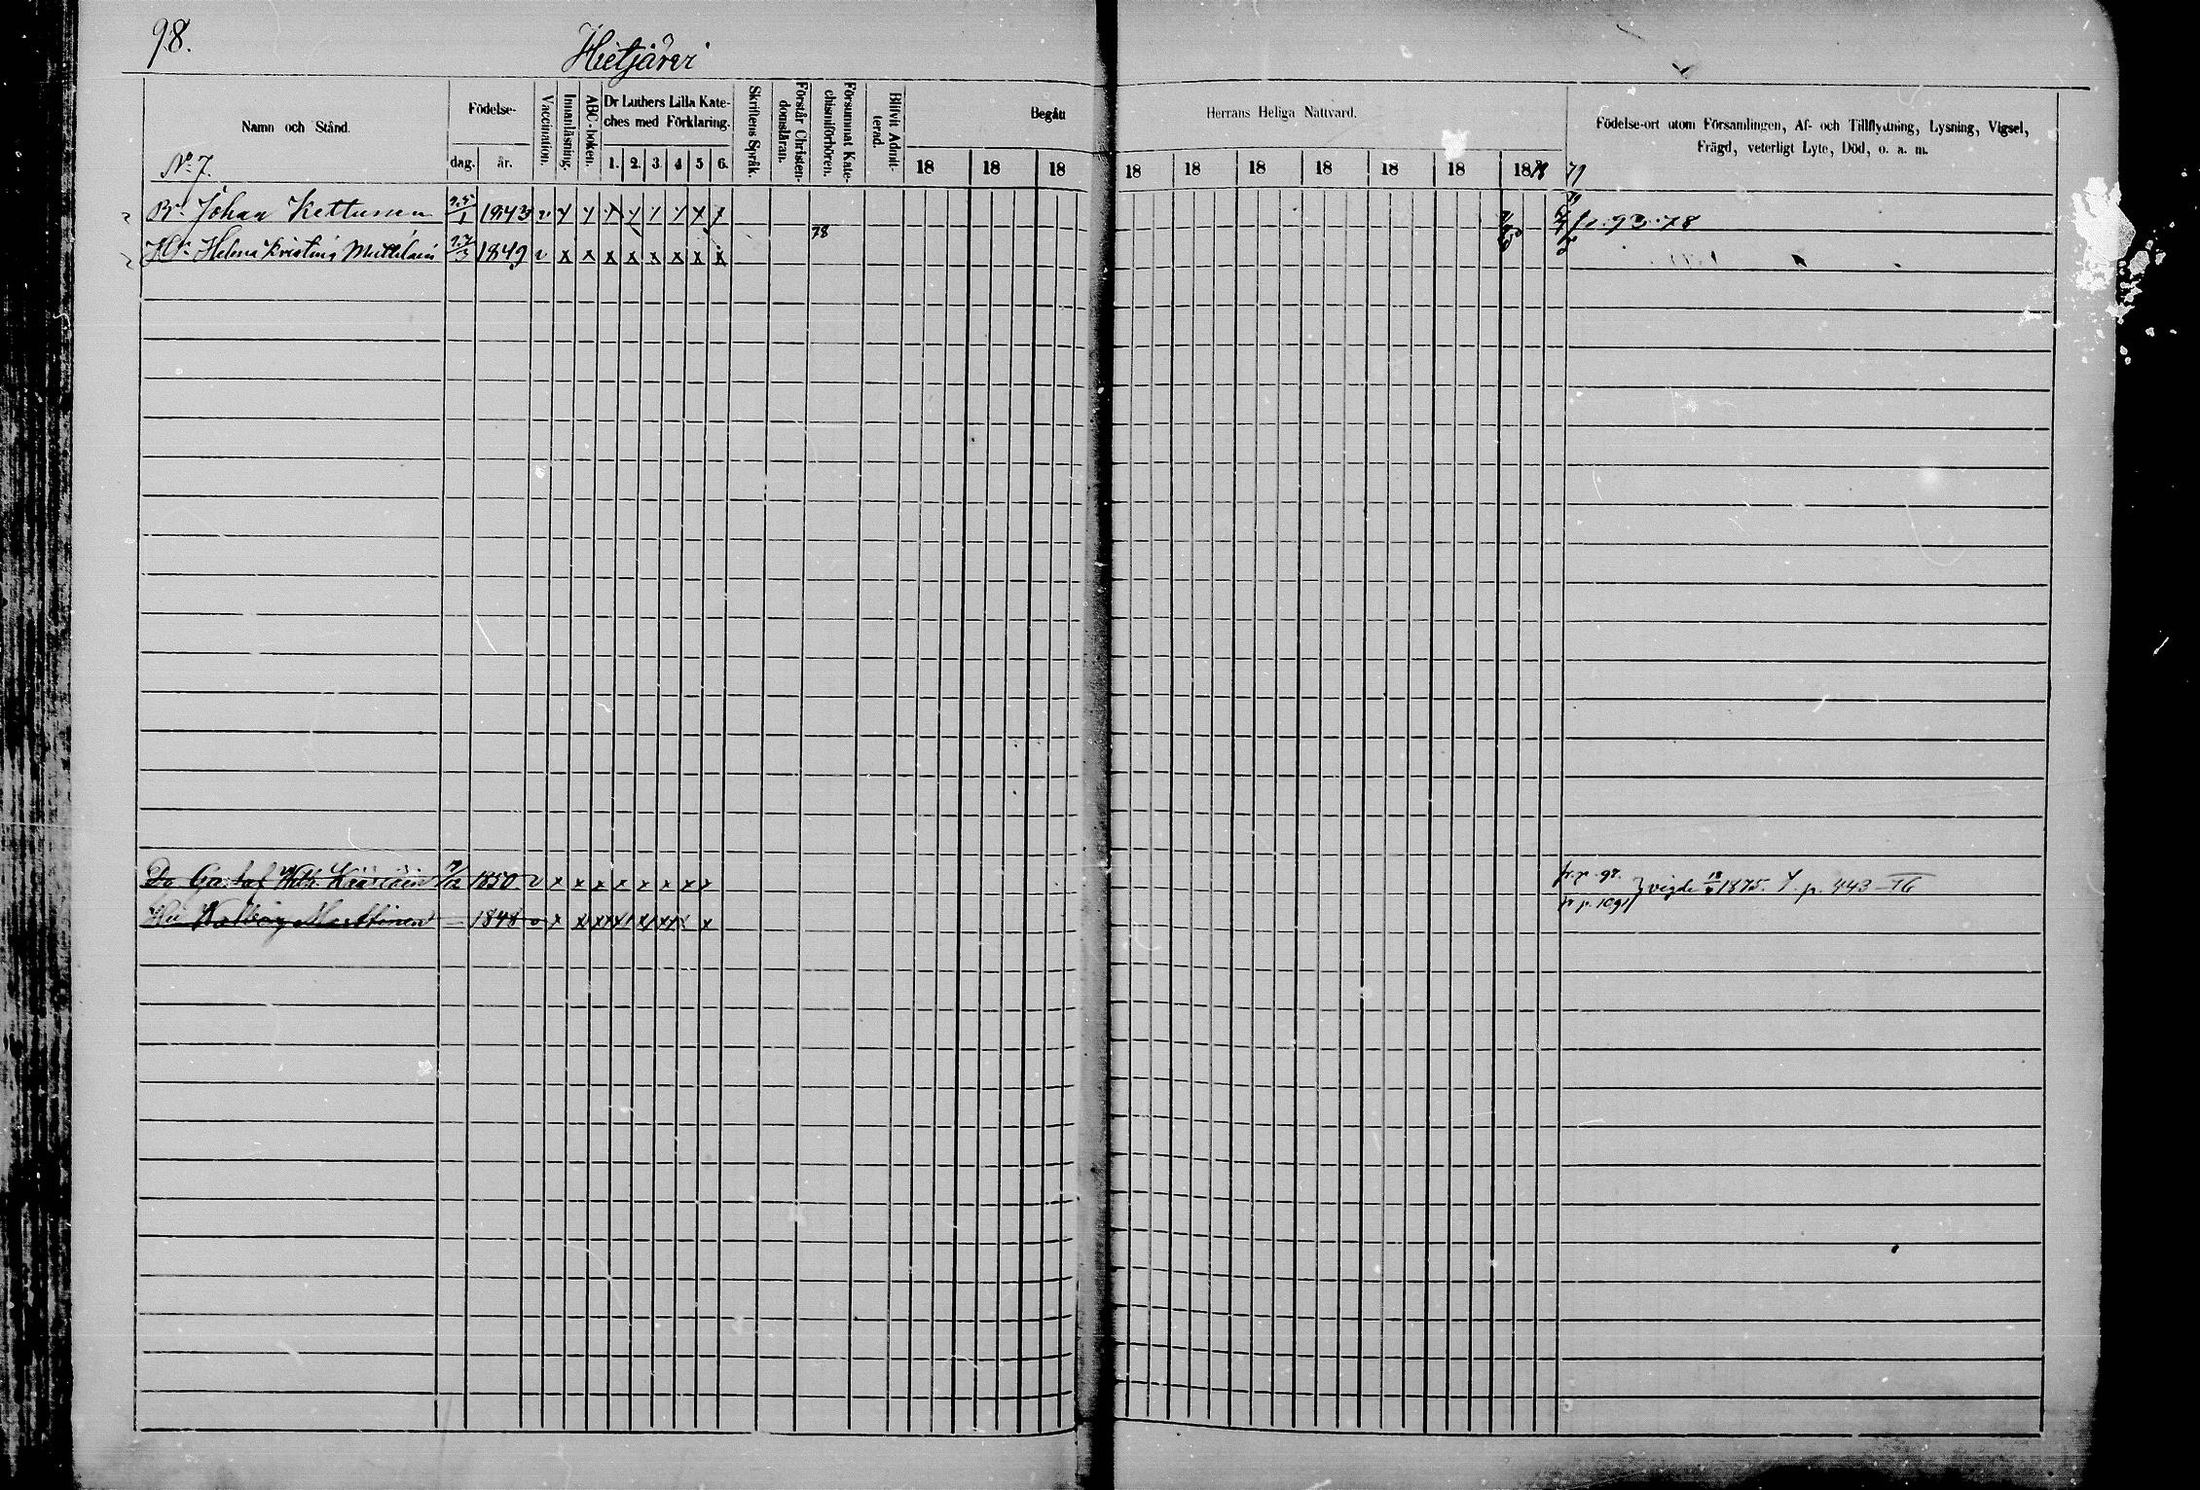 98.
Hietjärvi
Namn och Stånd.
Födelse-
dag.
år.
Vaccination.
Innanläsning.
ABC-boken.
Dr Luthers Lilla Kate-
ches med Förklaring.
1. 2. 3. 4 5 6.
Skriftens Språk.
Förstår Christen-
domsläran.
Försummat Kate-
chismiförhören.
Blifvit Admit-
terad.
Begått
18 18 18
Herrans Heliga Nattvard.
18 18 18 18 18 18 1878 79
Födelse-ort utom Församlingen, Af- och Tillflyttning, Lysning, Vigsel,
Frägd, veterligt Lyte, Död, o. a. m.
No 7.
Johan Kettunen 25/1 1843 v x x x x x x x x fr. 93. 78
78
Hu Helena Kristina 27/3 1849 v x x x x x x x x
1850 v x x x x x x x x fr. p. 97. vigde 1875. p. 443
Hu Marttinen 1848 v x x x x x x x x fr p. 1091